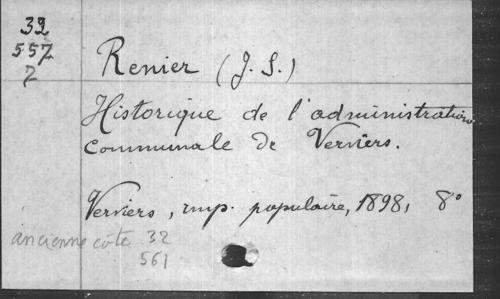 32
557
2
Renier (J. S.)
Historique de l'administration
communale de Verviers.
Verviers, imp. populaire, 1898, 8°
ancienne côte 32
561